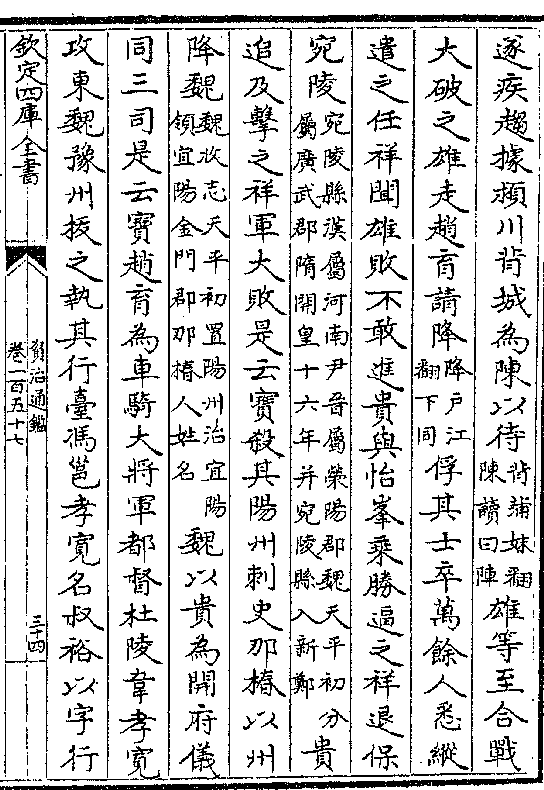 遂疾趨據潁川背城為陳以待背蒲妹翻陳讀曰陣雄等至合戰
大破之雄走趙育請降降户江翻下同俘其士卒萬餘人悉縱
遣之任祥聞雄敗不敢進貴與怡峯乘勝逼之祥退保
宛陵宛陵縣漢屬河南尹晉屬滎陽郡魏天平初分屬廣武郡隋開皇十六年并宛陵縣入新鄭貴
追及擊之祥軍大敗是云寶殺其陽州刺史那椿以州
降魏魏收志天平初置陽州治宜陽領宜陽金門郡那椿人姓名魏以貴為開府儀
同三司是云寶趙育為車騎大將軍都督杜陵韋孝寛
攻東魏豫州拔之執其行臺馮邕孝寛名叔裕以字行
欽定四庫全書
資治通鑑
卷一百五十七
三十四